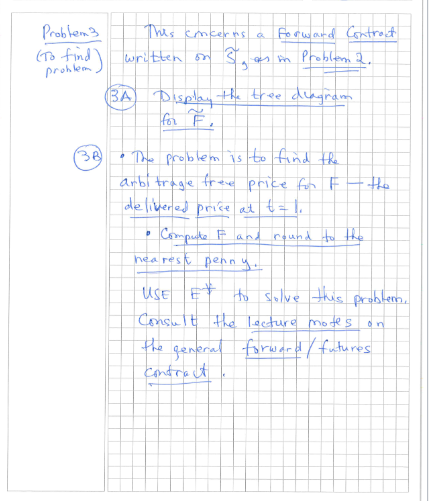 Problem 3
(To find)
problem
This concerns a Forward Contract
written on S̃, as in Problem 2.
(3A) Display the tree diagram
for F̃.
(3B) • The problem is to find the
arbitrage free price for F — the
delivered price at t=1.
• Compute F and round to the
nearest penny.
USE E* to solve this problem.
Consult the lecture notes on
the general forward/futures
contract.